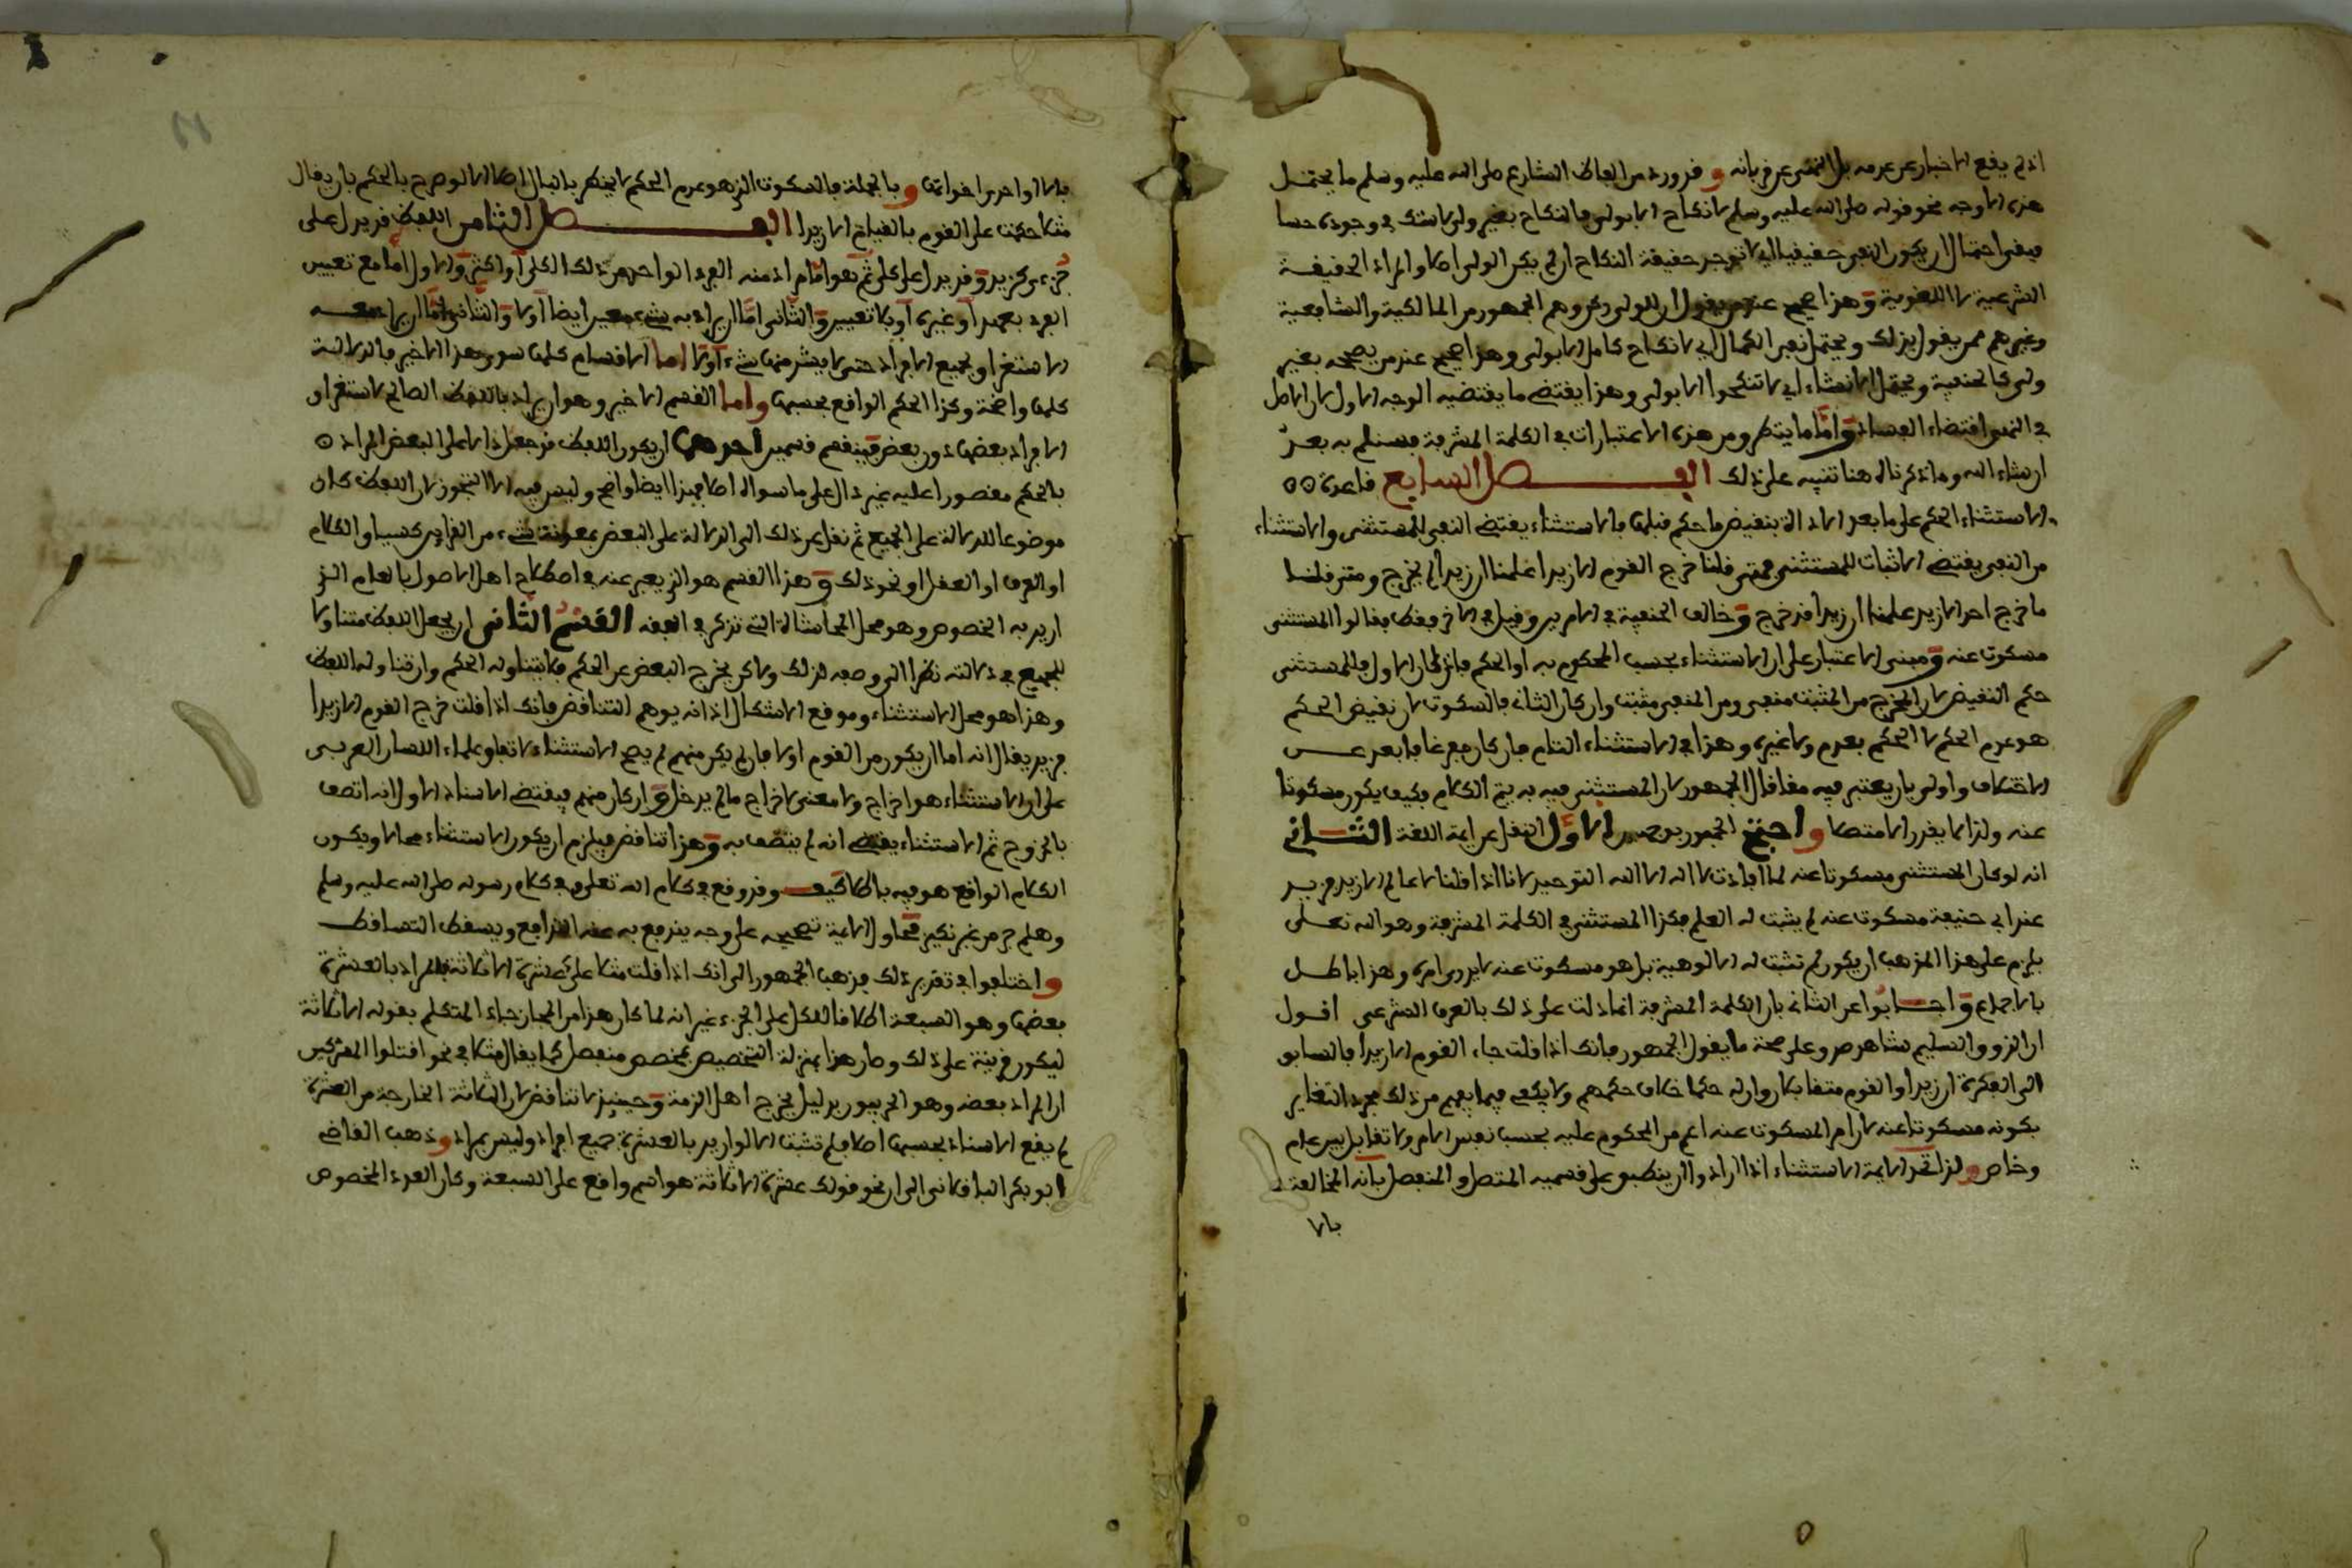 اذ لم يقع الاخبار عن عدمه بل النهي عن قربانه وقد ورد من الفاظ الشارع صلى الله عليه وسلم ما يحتمل
هذه الاوجه نحو قوله صلى الله عليه وسلم لا نكاح الا بولي فالنكاح بغير ولي لا شك في وجوده حسا
فبقي احتمال ان يكون النفي حقيقيا اي لا توجد حقيقة النكاح ان لم يكن الولي اصلا والمراد الحقيقة
الشرعية لا اللغوية وهذا صحيح عند من يقول ان الولي ركن وهم الجمهور من المالكية والشافعية
وغيرهم ممن يقول بذلك ويحتمل نفي الكمال اي لا نكاح كامل الا بولي وهذا صحيح عند من يصححه بغير
ولي كالحنفية ويحتمل الانشاء اي لا تنكحوا الا بولي وهذا يقتضي ما يقتضيه الوجه الاول لان الاصل
في النهي اقتضاء الفساد واما ما ينظر من هذه الاعتبارات في الكلمة المشرفة فسنلم به بعد
ان شاء الله وما ذكرناه هنا تنبيه على ذلك الفصل السابع قاعدة
الاستثناء الحكم على ما بعد الاداة بنقيض ما حكم قبلها فالاستثناء يقتضي النفي للمستثنى والاستثناء
من النفي يقتضي الاثبات للمستثنى فمتى قلنا خرج القوم الا زيدا علمنا ان زيدا لم يخرج ومتى قلنا
ما خرج احد الا زيد علمنا ان زيدا قد خرج وخالف الحنفية في الامرين وقيل في الاخر فقط فقالوا المستثنى
مسكوت عنه ومبنى الاعتبار على ان الاستثناء بحسب المحكوم به او الحكم فان كان الاول فللمستثنى
حكم النقيض لان المخرج من المثبت منفي ومن المنفي مثبت وان كان الثاني فالسكوت لان نقيض الحكم
هو عدم الحكم لا الحكم بعدم ولا غيره وهذا في الاستثناء التام فان كان مفرغا فابعد عن
الاختلاف واولى بان يعتبر فيه مقالة الجمهور لان المستثنى فيه به يتم الكلام فكيف يكون مسكوتا
عنه ولذا لا يقدر الا متصلا واحتج الجمهور بوجهين الاول النقل عن ايمة اللغة الثاني
انه لو كان المستثنى مسكوتا عنه لما افادت لا اله الا الله التوحيد لانا اذا قلنا لا عالم الا زيد فزيد
عند ابي حنيفة مسكوت عنه لم يثبت له العلم فكذا المستثنى في الكلمة المشرفة وهو الله تعلى
يلزم على هذا المذهب ان يكون لم تثبت له الالوهية بل هو مسكوت عنه لا يدرى امره وهذا باطل
بالاجماع واجابوا عن الثاني بان الكلمة المشرفة انما دلت على ذلك بالعرف الشرعي اقول
ان الذوق السليم شاهد صدق على صحة ما يقول الجمهور فانك اذا قلت جاء القوم الا زيدا فالسابق
الى الفكرة ان زيدا والقوم متقابلان وان له حكما خلاف حكمهم ولا يكفي فيما يفهم من ذلك مجرد التغاير
بكونه مسكوتا عنه لان امر المسكوت عنه اعم من المحكوم عليه بحسب نفس الامر ولا تقابل بين عام
وخاص ولذا تحد الايمة الاستثناء اذا ارادوا ان ينطبق على قسميه المتصل والمنفصل بانه المخالفة
بالا
بالا او احدى اخواتها وبالجملة فالسكوت الذي هو عدم الحكم لا يخطر بالبال اصلا الا لو صرح بالحكم بان يقال
مثلا حكمت على القوم بالقيام الا زيدا الفصل الثامن اللفظ قد يدل على
جزءي كزيد وقد يدل على كلي ثم هو اما مراد منه الفرد الواحد من ذلك الكلي او اكثر والاول اما مع تعيين
الفرد بعهد او غيره او بلا تعيين والثاني اما ان يراد به شيء معين ايضا او لا والثاني اما ان يراد معه
الاستغراق لجميع الافراد حتى لا يشذ منها شيء او لا اما الاقسام كلها سوى هذا الاخير فالدلالة
كلها واضحة وكذا الحكم الواقع بحسبها واما القسم الاخير وهو ان يراد باللفظ الصالح لاستغراق
الافراد بعضها دون بعض فينقسم قسمين احدهما ان يكون اللفظ قد جعل دالا على البعض المراد
بالحكم مقصورا عليه غير دال على ما سواه اصلا فهذا ايضا واضح وليس فيه الا التجوز لان اللفظ كان
موضوعا للدلالة على الجميع ثم نقل عن ذلك الى الدلالة على البعض بمعونة شيء من القراين كسياق الكلام
او العرف او العقل او نحو ذلك وهذا القسم هو الذي يعبر عنه في اصطلاح اهل الاصول بالعام الذي
اريد به الخصوص وهو محل المجاز التي تذكر في الفقه القسم الثاني ان يجعل اللفظ متناولا
للجميع في دلالته نظرا الى وضعه لذلك ولكن يخرج البعض عن الحكم فلا يتناوله الحكم وان تناوله اللفظ
وهذا هو محل الاستثناء وموقع الاشكال اذ انه يوهم التناقض فانك اذا قلت خرج القوم الا زيدا
فزيد يقال انه اما ان يكون من القوم او لا فان لم يكن منهم لم يصح الاستثناء لاتفاق علماء اللسان العربي
على ان الاستثناء هو اخراج ولا معنى لاخراج ما لم يدخل وان كان منهم فيقتضي الاسناد الاول انه اتصف
بالخروج ثم الاستثناء يقتضي انه لم يتصف به وهذا تناقض فيلزم ان يكون الاستثناء محالا ويكون
الكلام الواقع هو فيه باطلا كيف وقد وقع في كلام الله تعلى وفي كلام رسوله صلى الله عليه وسلم
وهلم جرا من غير نكير فحاول الايمة تصحيحه على وجه يندفع به عنه التدافع ويسقط التساقط
واختلفوا في تقرير ذلك فذهب الجمهور الى انك اذا قلت مثلا علي عشرة الا ثلاثة فالمراد بالعشرة
بعضها وهو السبعة اطلاقا للكل على الجزء غير انه لما كان هذا من المجاز جاء المتكلم بقوله الا ثلاثة
ليكون قرينة على ذلك وصار هذا بمنزلة التخصيص بمخصص منفصل كما يقال مثلا في نحو اقتلوا المشركين
ان المراد بعضه وهو الحربيون بدليل يخرج اهل الذمة وحينئذ لا تناقض لان الثلاثة الخارجة من العشرة
لم يقع الاسناد بحسبها اصلا فلم تثبت الا لو اريد بالعشرة جميع افراد وليس بمراد وذهب القاضي
ابو بكر الباقلاني الى ان نحو قولك عشرة الا ثلاثة هو اسم واقع على السبعة وكان العدد المخصوص